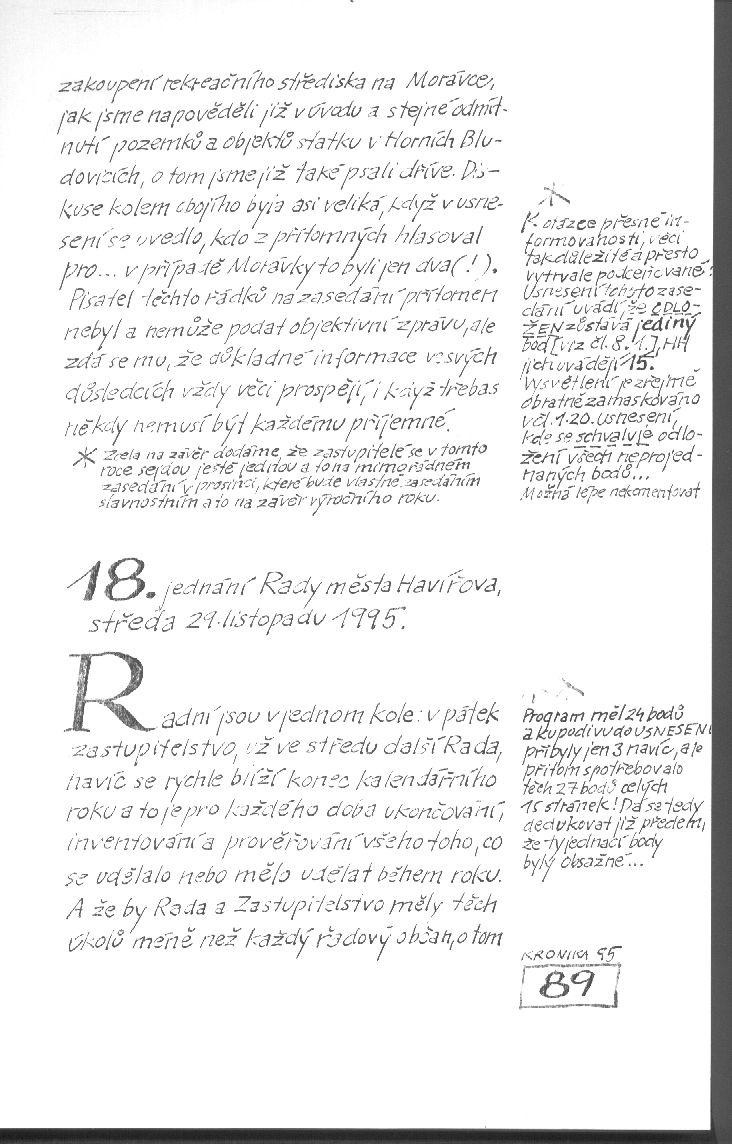 zakoupení rekreačního střediska na Morávce,
jak jsme napověděli již v úvodu a stejné odmít-
nutí pozemků a objektů statku v Horních Blu-
dovicích, o tom jsme již také psali dříve. Dis-
kuse kolem obojího byla asi veliká, když v usne-
sení se uvedlo, kdo z přítomných hlasoval
pro... v případě Morávky to byli jen dva (!).
Pisatel těchto řádků na zasedání přítomen
nebyl a nemůže podat objektivní zprávu, ale
zdá se mu, že důkladné informace ve svých
důsledcích vždy věci prospějí, i když třebas
někdy nemusí být každému příjemné.
* Zcela na závěr dodáme, že zastupitelé se v tomto
roce sejdou ještě jednou a to na mimořádném
zasedání v prosinci, které bude vlastně zasedáním
slavnostním a to na závěr výročního roku.
*
K otázce přesné in-
formovanosti, věci
tak důležité a přesto
vytrvale podceňované:
Usnesení tohoto zase-
dání uvádí, že ODLO-
ŽEN zůstává jediný
bod [viz čl. 8.1.], HH
jich uvádějí 15.
Vysvětlení je zřejmě
obratně zamaskováno
v čl. 1.20. usnesení,
kde se schvaluje odlo-
žení všech neprojed-
naných bodů...
Možná lépe nekomentovat
18. jednání Rady města Havířova,
středa 29. listopadu 1995.
Radní jsou v jednom kole: v pátek
zastupitelstvo, už ve středu další Rada,
navíc se rychle blíží konec kalendářního
roku a to je pro každého doba ukončování,
inventování a prověřování všeho toho, co
se udělalo nebo mělo udělat během roku.
A že by Rada a Zastupitelstvo měly těch
úkolů méně než každý řadový občan, o tom
Program měl 24 bodů
a kupodivu do USNESENÍ
přibyly jen 3 navíc, ale
přitom spotřebovalo
těch 27 bodů celých
15 stránek! Dá se tedy
dedukovat již předem,
že ty jednací body
byly obsažné...
KRONIKA 95
89